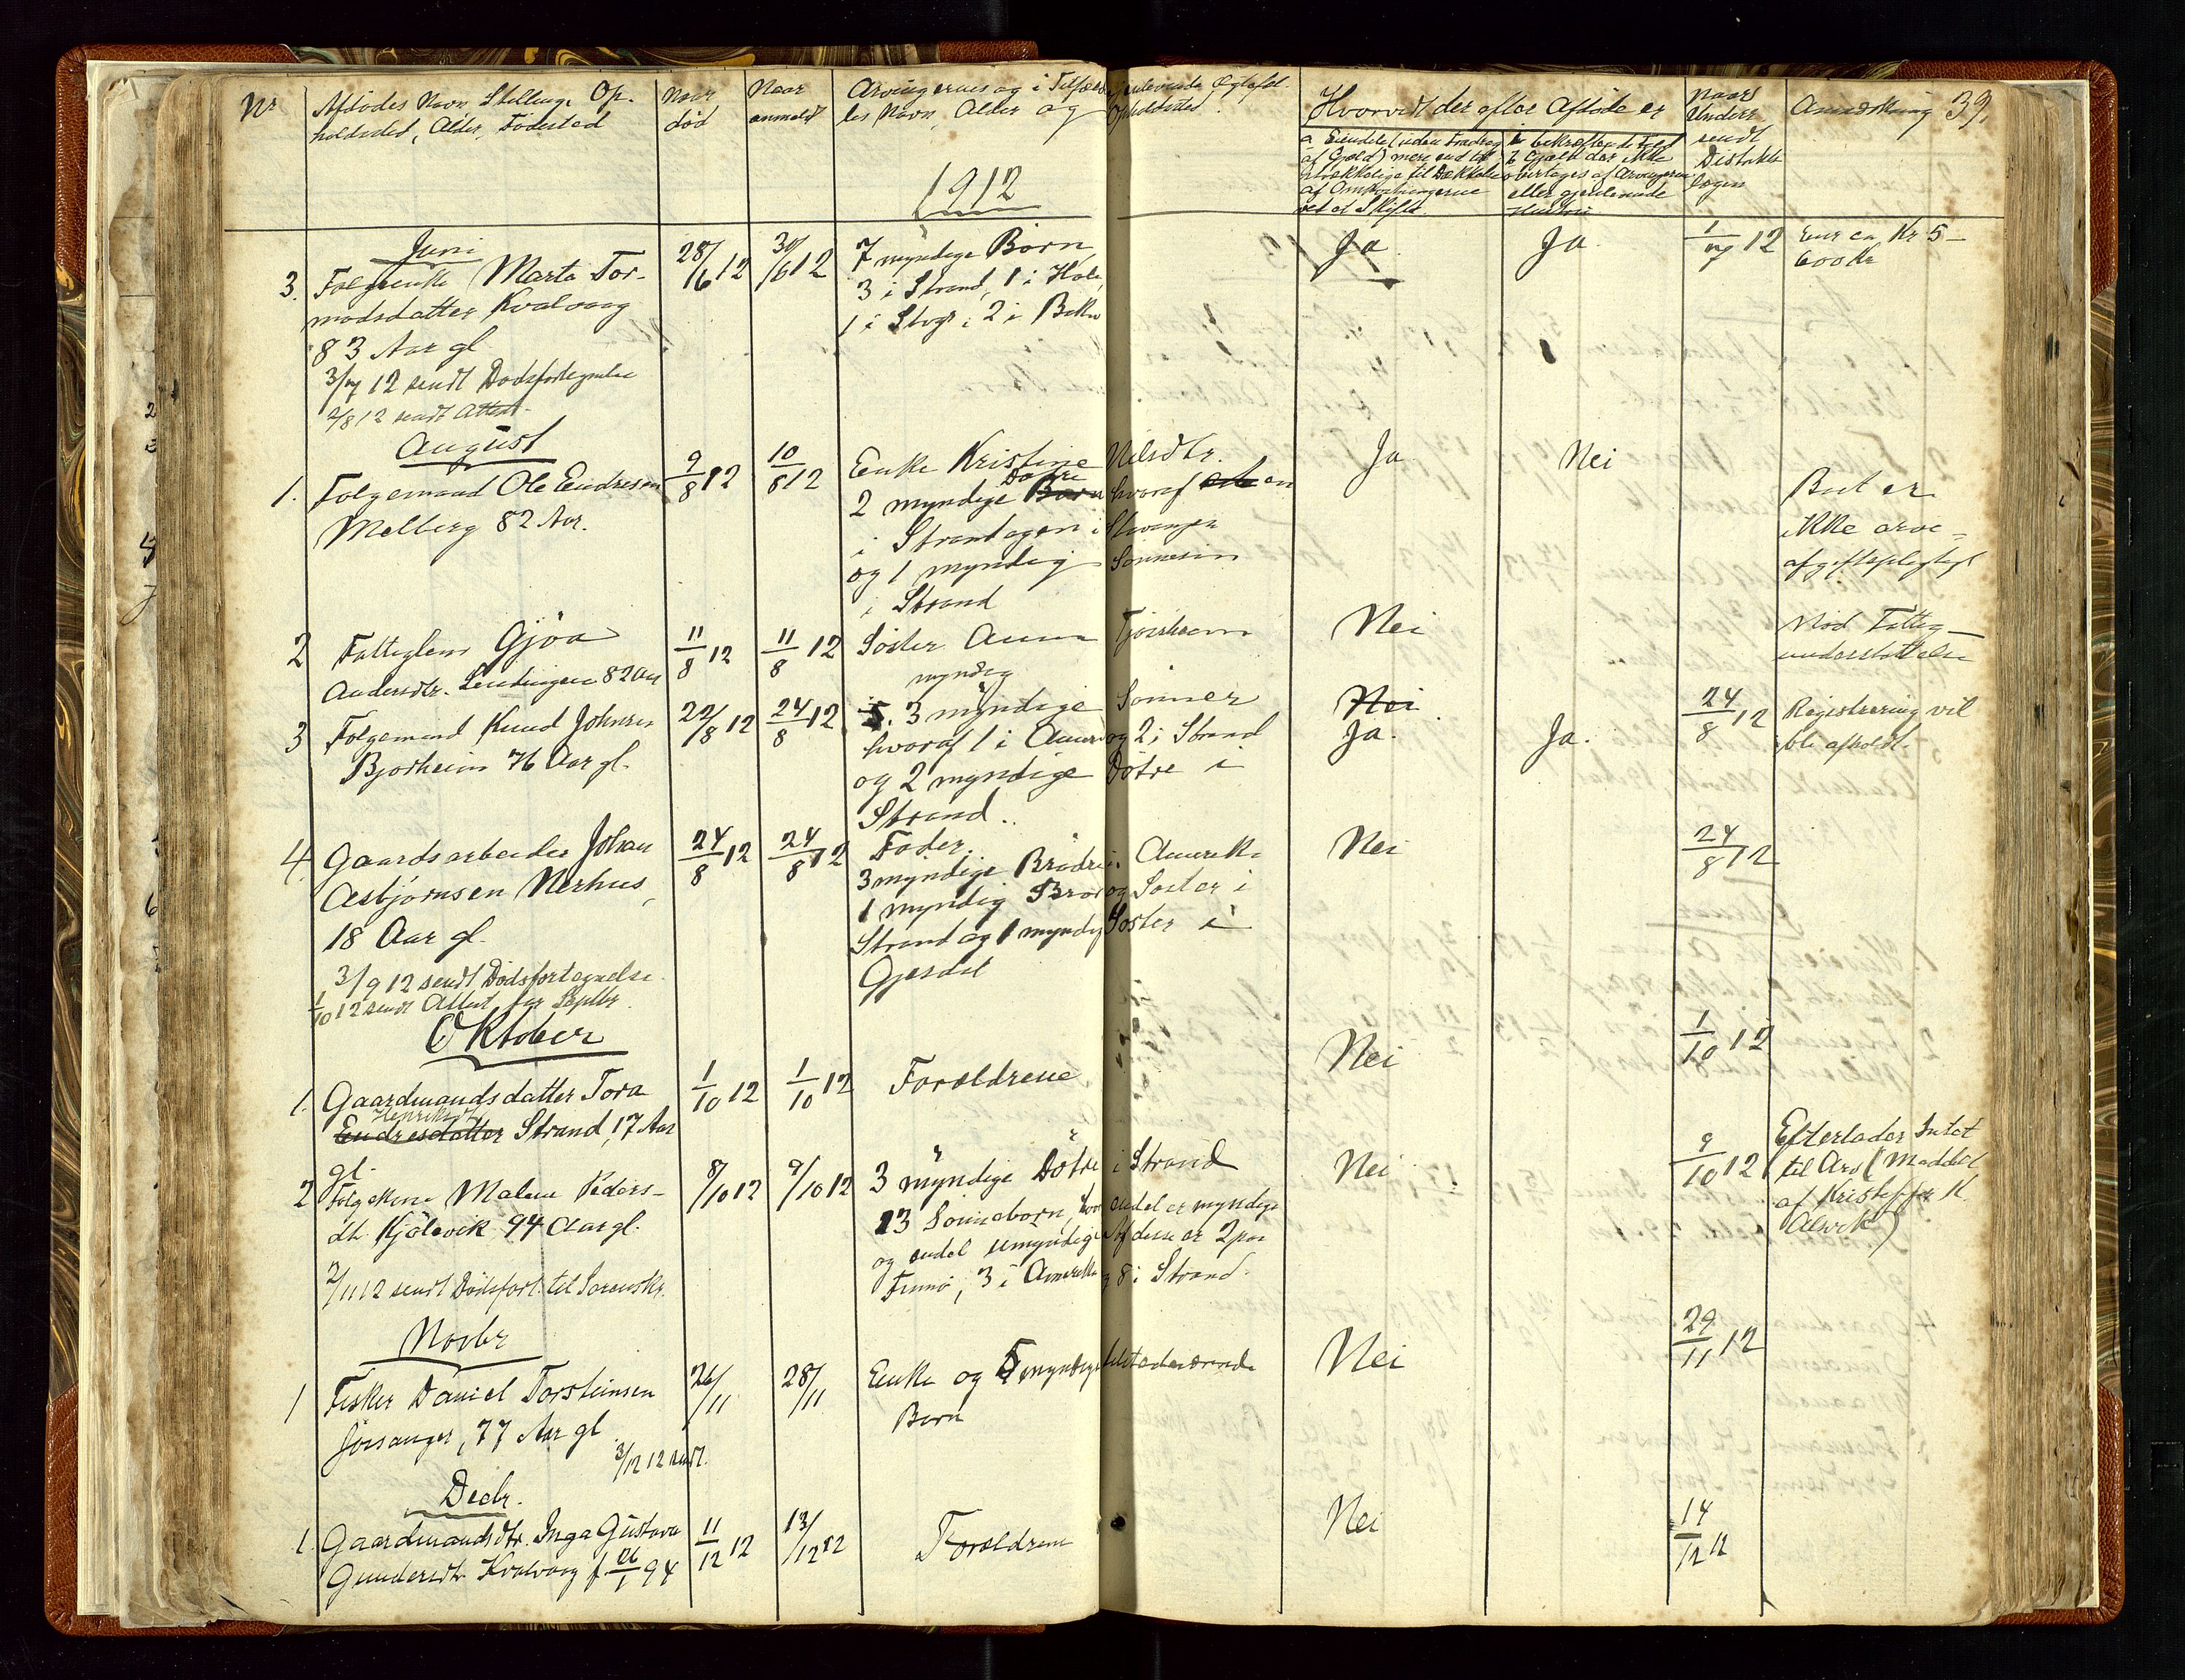 Nr
Afdødes Navn Stilling, Op-
holdssted, Alder, Fødested
Naar
død
Naar
anmeldt
Arvingernes og i Tilfælde gjenlevende Ægtefæl-
les Navn, Alder og Opholdssted
Hvorvidt der efter Afdøde er
a. Eiendele (uden Fradrag
af Gjæld) mere end til-
strækkelige til Dækkelse
af Omkostningerne
ved et Skifte
b. bekræftende Fald
Gjæld der ikke
overtages af Arvingerne
eller gjenlevende
Hustru
Naar
Under
sendt
Distrikts
lægen
Anmærkning 39.
1912
Juni
3. Folgeenke Marta Tor-
modsdatter Kvalvaag
83 Aar gl.
28/6 12
30/6 12
7 myndige Børn
3 i Strand, 1 i Hole,
1 i Stvgr, 2 i Bokn
Ja
Ja.
1/7 12
Eier ca Kr 5-
600 Kr
3/7 12 sendt Dødsfortegnelse
2/8 12 sendt Attest
August
1. Folgemand Ole Endresen
Melberg 82 Aar.
9/8 12
10/8 12
Enke Kristine Nilsdtr.
2 myndige Børn Døtre hvoraf en
i Strand og en i Stavanger
og 1 myndig Sønnesøn
i Strand
Ja
Nei
Boet er
ikke arve-
afgiftspligtigt
2 Fattiglem Gjøa
Andersdtr. 82 Aar
11/8 12
11/8 12
Søster Anna Tjøstheim
myndig
Nei
Nød Fattig-
understøttelse
3 Folgemand Knud Johnsen
Bjørheim 76 Aar gl.
22/8 12
24/8 12
5. 3 myndige Sønner
hvoraf 1 i Amer. og 2 i Strand
og 2 myndige Døtre i
Strand.
Nei
Ja.
Ja.
24/8 12
Registrering vil
bli afholdt.
4. Gaardsarbeider Johan
Asbjørnsen Nerhus,
18 Aar gl.
24/8 12
24/8 12
Fader.
3 myndige Brødre i Amerika
1 myndig Bror og Søster i
Strand og 1 myndig Søster i
Gjesdal
Nei
24/8 12
3/9 12 sendt Dødsfortegnelse
1/10 12 sendt Attest for Septbr.
Oktober
1. Gaardmandsdatter Tora
Henriksdtr
Endresdatter Strand, 17 Aar
gl.
1/10 12
1/10 12
Forældrene
Nei
1/10 12
2 Folgekone Malene Peders-
dtr. Kjølevik 94 Aar gl.
8/10 12
9/10 12
3 myndige Døtre i Strand
13 Sønnebørn, hvor endel er myndige
og endel umyndige Af disse er 2 paa
Finnø, 3 i Amerika og 8 i Strand.
Nei
9/10 12
Efterlader Intet
til Arv (Meddelt
af Kristoffer K.
Alsvik)
2/11 12 sendt Dødsfort. til Sorenskr.
Novbr
1 Fisker Daniel Torsteinsen
Jørsanger, 77 Aar gl
26/11
28/11
Enke og 5 myndige tilstedeværende
Børn
Nei
29/11 12
3/12 12 sendt.
Decbr.
1. Gaardmandsdtr. Inga Gustava
Gundersdtr Kvalvaag f. 26/1 94
11/12 12
13/12 12
Forældrene
Nei
14/12 12